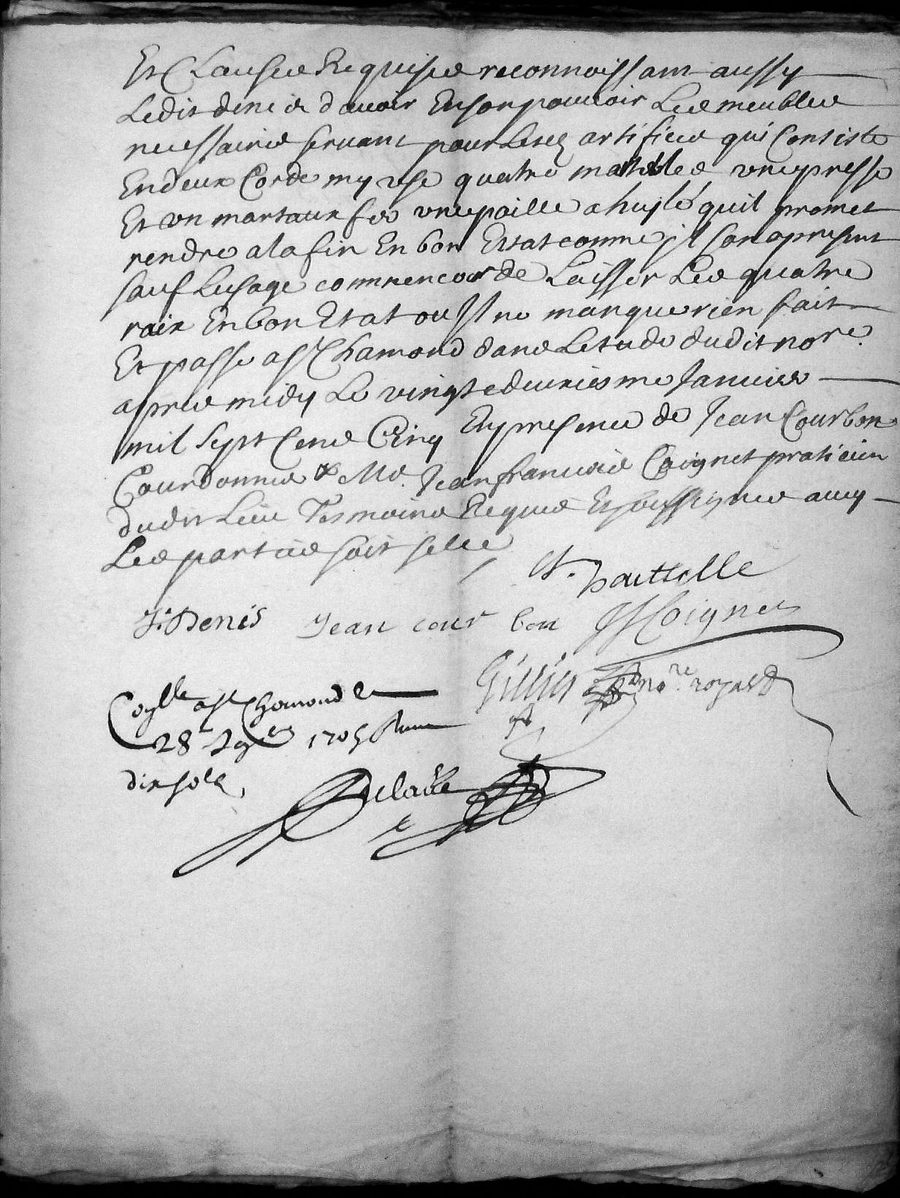 Et Clauses Requises reconnoissant aussy
Ledit denis d'avoir Enson pouvoir Les meubles
necessaires servant pour Lesd artifices qui Consiste
En deux Corde my use quatre une presse
Et un martaux fer une paille a huyle quil promet
rendre a la fin En bon Estat comme jl son apresent
sauf Lusage comme encor de Laisser Les quatre
raix En bon Etat ou Jl ne manque rien fait
Et passé a St Chamond dans Letude dudit nore.
apres midy Le vingtedeuxiesme Janvier
mil Sept Cens Cinq En presence de Jean Courbon
Courdonnier & Me. Jean francois Coignet praticien
dudit Lieu Tesmoins Requis Et soussignes avec
Les parties soit selle
Douttelle
J. Denis Jean cour bon JfCoignet
Gillier nore. royal
St Chamond le
28e 1705 Receu
dix sols
Delaille